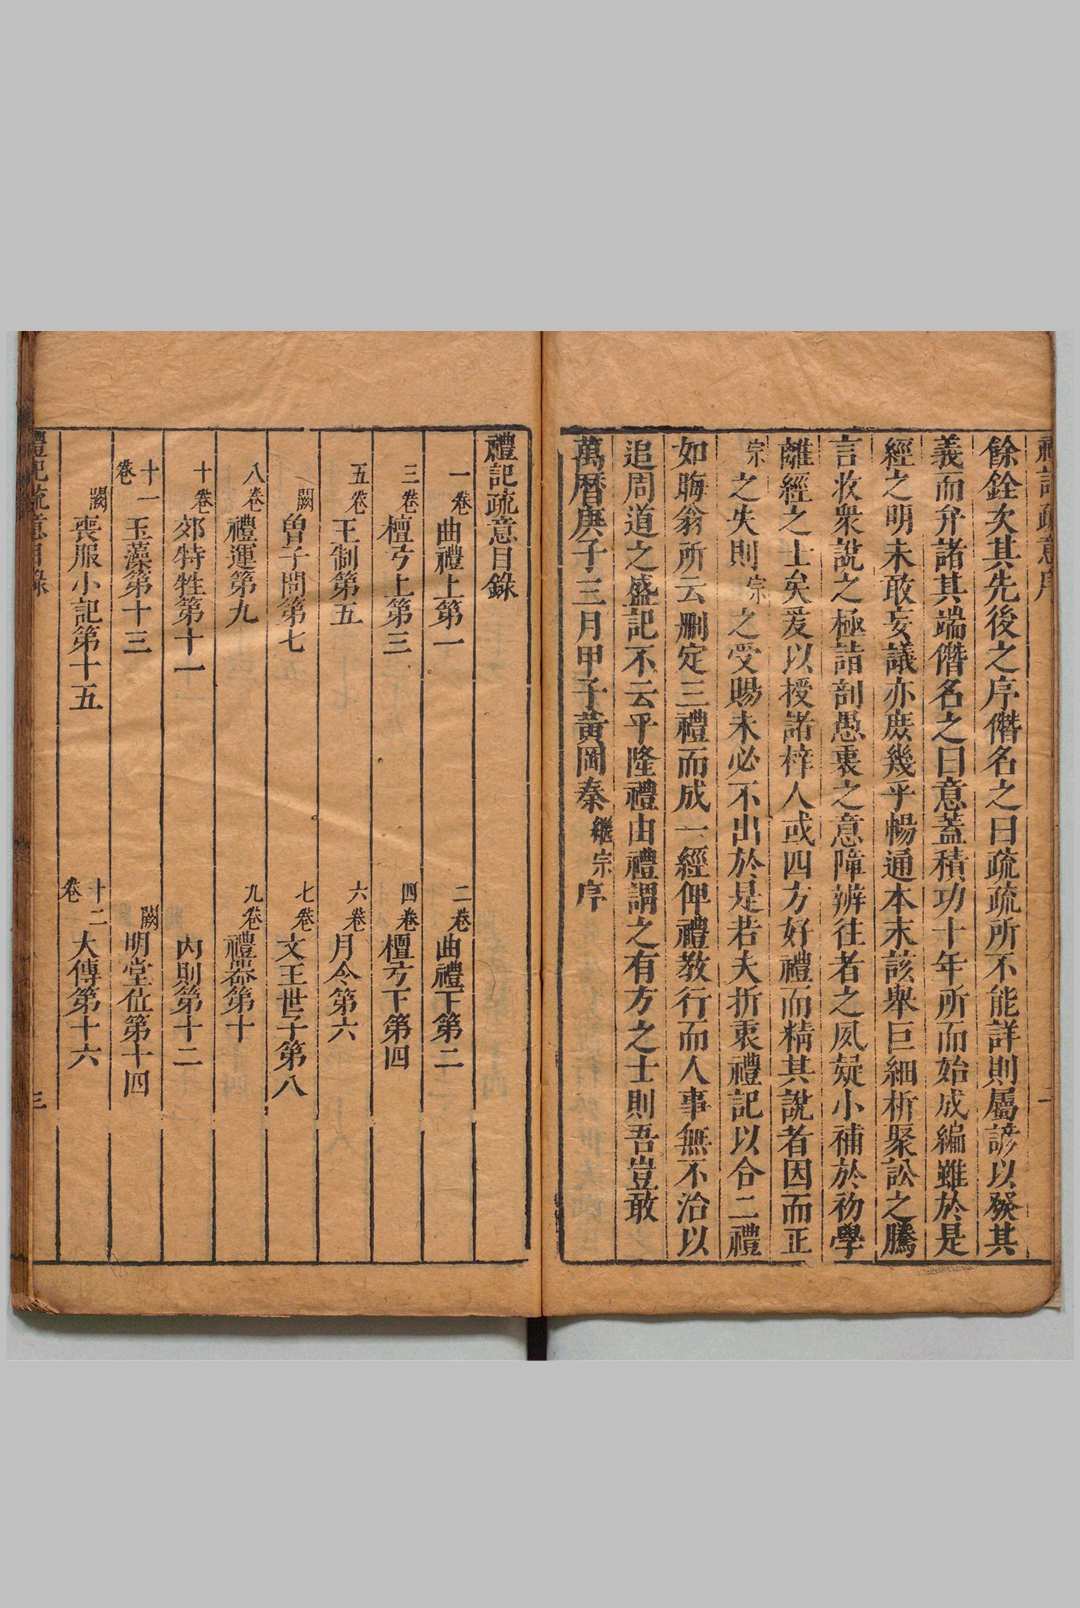 禮記疏意序
二
餘銓次其先後之序僭名之曰疏疏所不能詳則屬諺以發其
義而弁諸其端僭名之曰意蓋積功十年所而始成編雖於是
經之明未敢妄議亦庶幾乎暢通本末該舉巨細析聚訟之騰
言收衆說之極詣剖愚衷之意障辨往者之夙疑小補於初學
離經之士矣爰以授諸梓人或四方好禮而精其說者因而正
宗之失則宗之受賜未必不出於是若夫折衷禮記以合二禮
如晦翁所云刪定三禮而成一經俾禮教行而人事無不洽以
追周道之盛記不云乎隆禮由禮謂之有方之士則吾豈敢
萬曆庚子三月甲子黃岡秦繼宗序
禮記疏意目錄
一卷 曲禮上第一 二卷 曲禮下第二
三卷 檀弓上第三 四卷 檀弓下第四
五卷 王制第五 六卷 月令第六
闕 曾子問第七 七卷 文王世子第八
八卷 禮運第九 九卷 禮器第十
十卷 郊特牲第十一 內則第十二
十一卷 玉藻第十三 闕 明堂位第十四
闕 喪服小記第十五 十二卷 大傳第十六
禮記疏意目錄
三